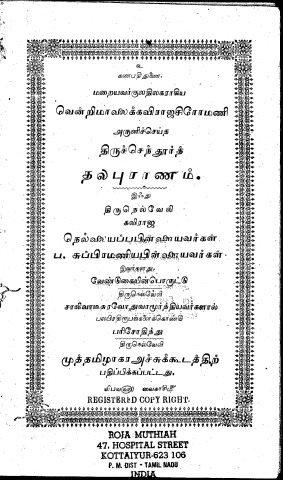 உ
கணபதிதுணை.
மறையவர்குலதிலகராகிய
வென்றிமாலைக்கவிராஜசிரோமணி
அருளிச்செய்த
திருச்செந்தூர்த்
தலபுராணம்.
இஃது
திருநெல்வேலி
கவிராஜ
நெல்லையப்பபிள்ளையவர்கள்
ப. சுப்பிரமணியபிள்ளையவர்கள்
இவர்களது
வேண்டுகையின்பொருட்டு
திருநெல்வேலி
சாலிவாடீசுரவோதுவாமூர்த்தியவர்களால்
பலபிரதிரூபங்களைக்கொண்டு
பரிசோதித்து
திருநெல்வேலி
முத்தமிழாகரஅச்சுக்கூடத்திற்
பதிப்பிக்கப்பட்டது.
வைகாசிமீ
REGISTERED COPY RIGHT.
ROJA MUTHIAH
47, HOSPITAL STREET
KOTTAIYUR-623 106
P. M. DIST - TAMIL NADU
INDIA